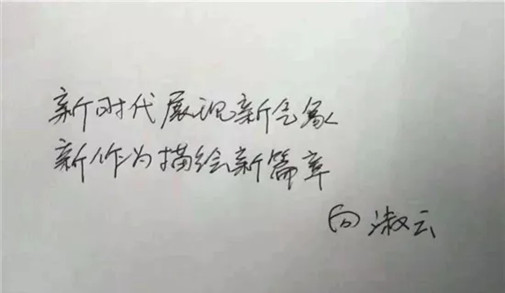 新时代展现新气象
新作为描绘新篇章
向淑云